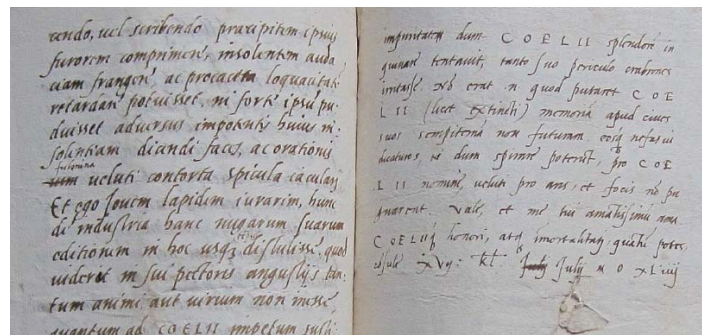 cendo, uel scribendo praecipitem ipsius
furorem comprimere, insolentem auda
ciam frangere, ac procacem loquacitatē
retardare potuisset, ni forte ipsū pu
duisset aduersus impotentis huius in
solentiam dicendi faces, ac orationis
fulmina
ueluti contorta spicula iaculari
Et ego Jouem lapidem iurarim, hunc
de industria hanc nugarum suarum
editionem in hoc usq; distulisse, quod
uideret in sui pectoris angustijs tan
tum animi aut uirium non inesse
quantum ad COELII impetum susti
impuritatem dum COELII splendorē in
quinare tentauit, tanto suo periculo crabrones
irritasse. Nō erat quod putaret COE
LII (licet extincti) memoriā apud ciues
suos sempiternā non futuram eosq; nefas
dum spirare poterūt, pro COE
LII nomine, ueluti pro aris, et focis nō pu
gnarent. Vale, et me tui amātissimū ama
COELIIq; honori, atq; immortalitati, quātū potes
cōsule XVij: kl: July July M D XLiiij